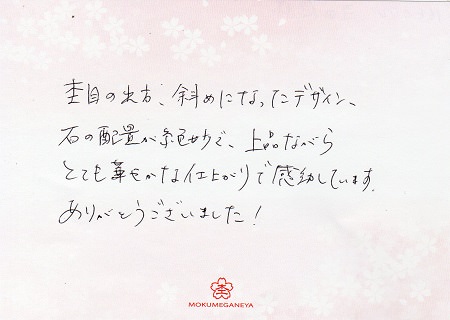 杢目の出方、斜めになったデザイン、
石の配置が絶妙で、上品ながら
とても華やかな仕上がりで感動しています。
ありがとうございました!
杢
MOKUMEGANEYA